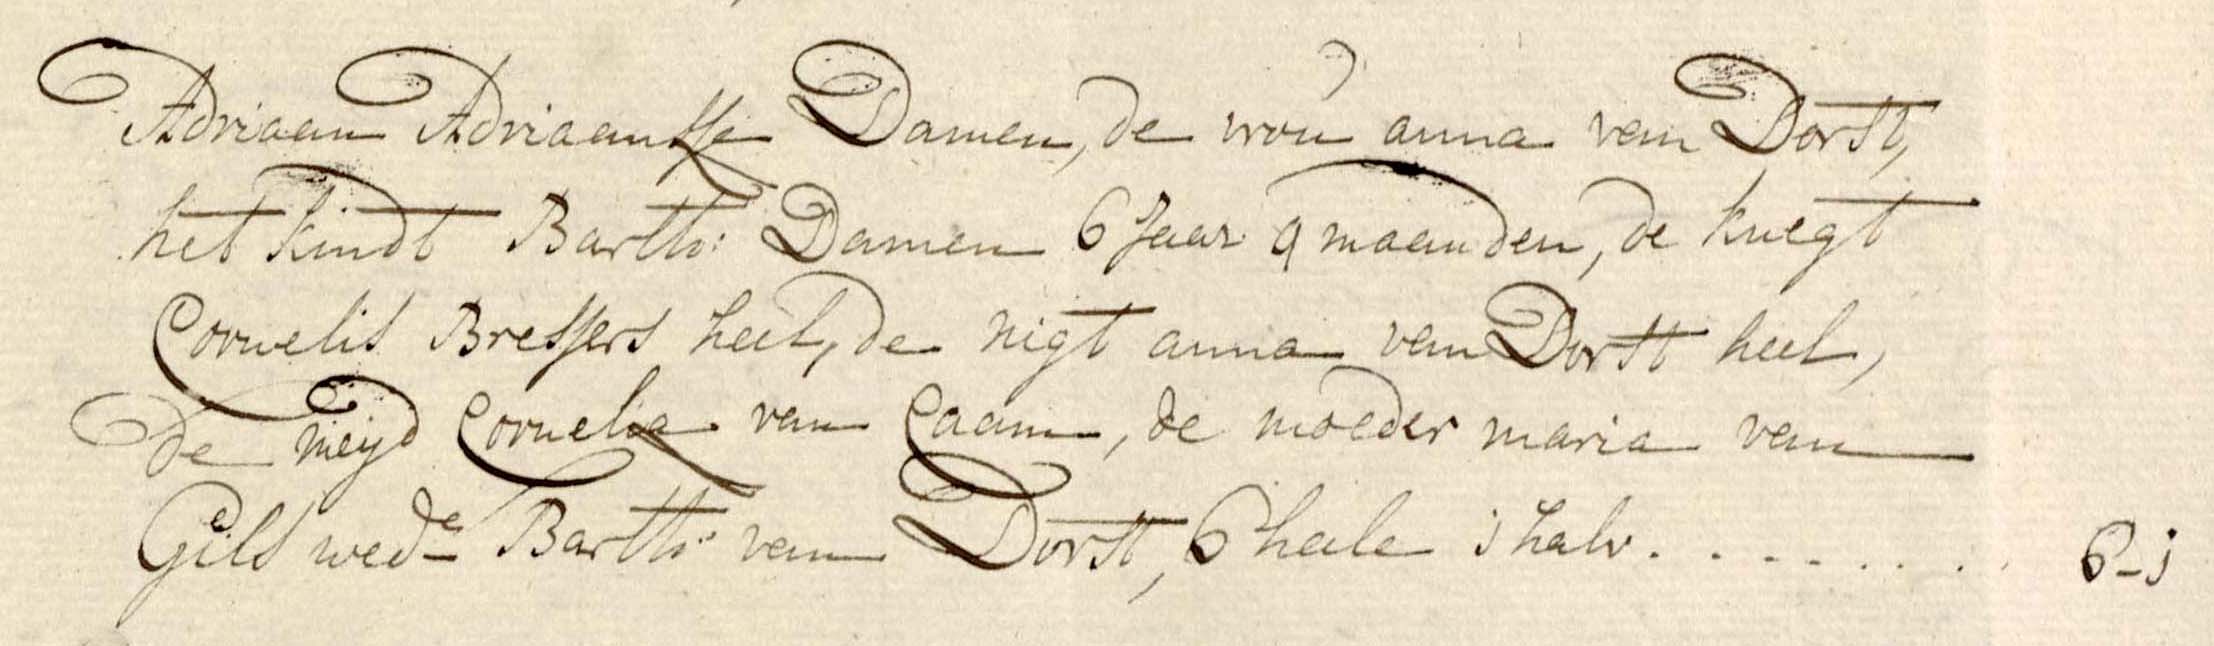 Adriaan Adriaansse Damen, de vrou anna van Dorst,
het kindt Barth: Damen 6 Jaar 9 maanden, de knegt
Cornelis Bressers heel, de nigt anna van Dorst heel,
de meyd Cornelia van Caam, de moeder maria van
Gils wed:e Barth: van Dorst, 6 heele j halv. . . . . . . . . 6-j